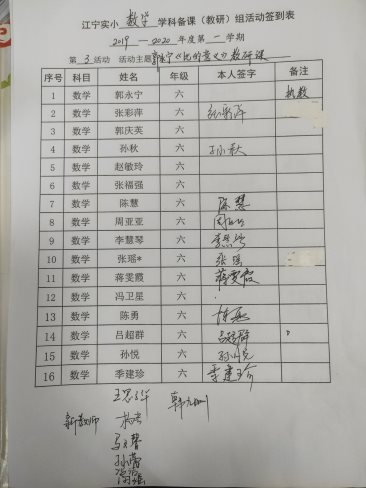 江宁实小 数学 学科备课（教研）组活动签到表
2019 — 2020 年度第 一 学期
第 3 活动 活动主题 郭永宁《比的意义》教研课
序号 科目 姓名 年级 本人签字 备注
1 数学 郭永宁 六 执教
2 数学 张彩萍 六 张彩萍
3 数学 郭庆英 六
4 数学 孙秋 六 孙秋
5 数学 赵敏玲 六
6 数学 张福强 六
7 数学 陈慧 六 陈慧
8 数学 周亚亚 六 周亚亚
9 数学 李慧琴 六 李慧琴
10 数学 张瑶* 六 张瑶
11 数学 蒋雯霞 六 蒋雯霞
12 数学 冯卫星 六
13 数学 陈勇 六 陈勇
14 数学 吕超群 六 吕超群
15 数学 孙悦 六 孙悦
16 数学 季建珍 六 季建珍
新教师